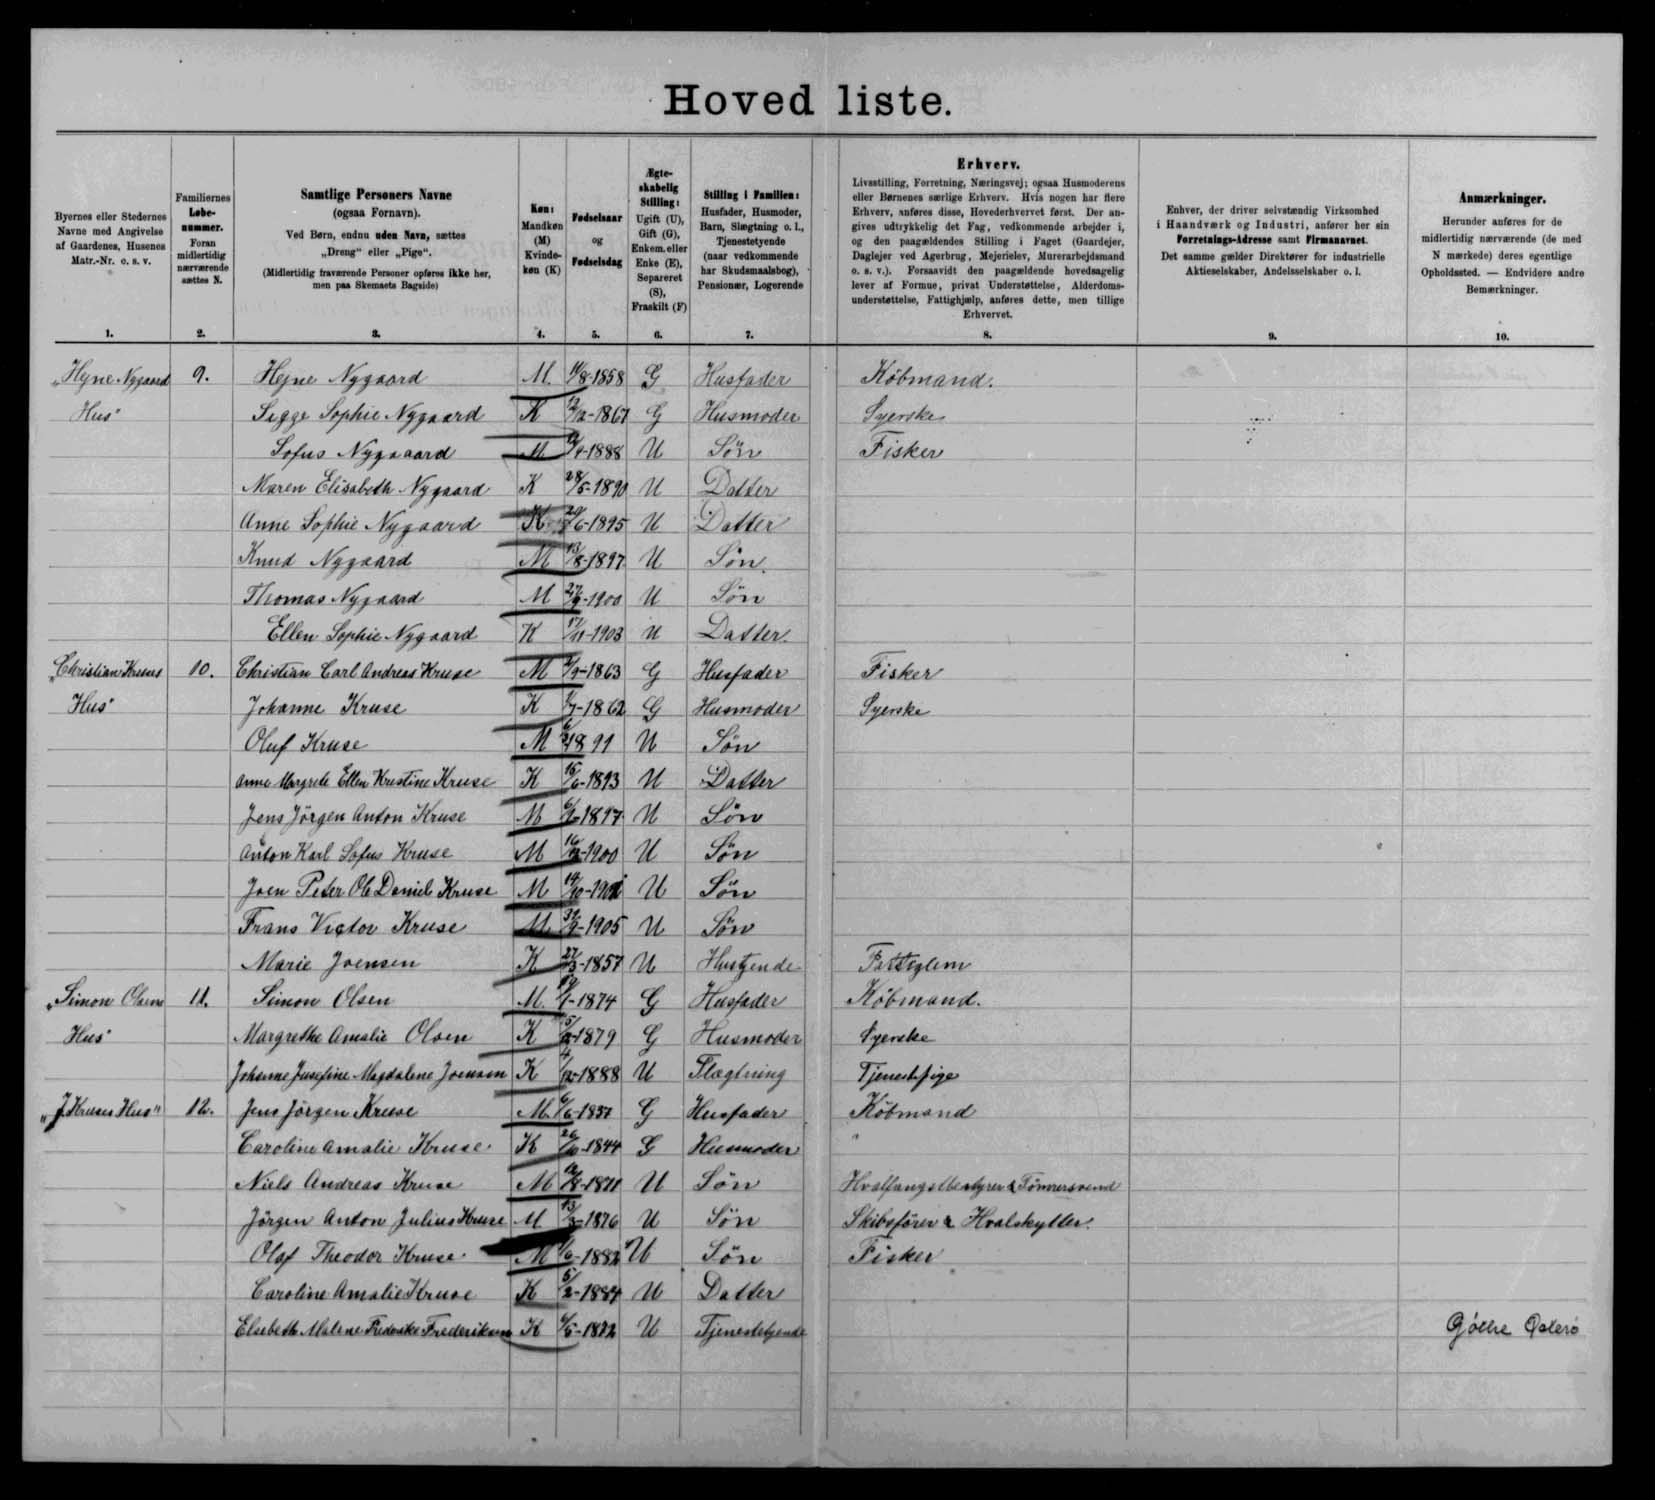 Hovedliste.
Byernes eller Stedernes Navne med Angivelse af Gaardenes, Husenes Matr.-Nr. o. s. v.
Familiernes Løbenummer. Foran midlertidig nærværende sættes N.
Samtlige Personers Navne (ogsaa Fornavn). Ved Børn, endnu uden Navn, sættes „Dreng" eller „Pige". (Midlertidig fraværende Personer opføres ikke her, men paa Skemaets Bagside)
Køn: Mandkøn (M) Kvindekøn (K)
Fødselsaar og Fødselsdag
Ægteskabelig Stilling: Ugift (U), Gift (G), Enkem. eller Enke (E), Separeret (S), Fraskilt (F)
Stilling i Familien: Husfader, Husmoder, Barn, Slægtning o. l., Tjenestetyende (naar vedkommende har Skudsmaalsbog), Pensionær, Logerende
Erhverv. Livsstilling, Forretning, Næringsvej; ogsaa Husmoderens eller Børnenes særlige Erhverv. Hvis nogen har flere Erhverv, anføres disse, Hovederhvervet først. Der angives udtrykkelig det Fag, vedkommende arbejder i, og den paagældendes Stilling i Faget (Gaardejer, Daglejer ved Agerbrug, Mejerielev, Murerarbejdsmand o. s. v.). Forsaavidt den paagældende hovedsagelig lever af Formue, privat Understøttelse, Alderdomsunderstøttelse, Fattighjælp, anføres dette, men tillige Erhvervet.
Enhver, der driver selvstændig Virksomhed i Haandværk og Industri, anfører her sin Forretnings-Adresse samt Firmanavnet. Det samme gælder Direktører for industrielle Aktieselskaber, Andelsselskaber o. l.
Anmærkninger. Herunder anføres for de midlertidig nærværende (de med N mærkede) deres egentlige Opholdssted. — Endvidere andre Bemærkninger.
1. 2. 3. 4. 5. 6. 7. 8. 9. 10.
„Hejne Nygaard 9. Hejne Nygaard M. 11/8-1858 G Husfader Købmand.
Hus" Sigge Sophie Nygaard K 12/12-1867 G Husmoder Syerske
Sofus Nygaaard M /4-1888 U Søn Fisker
Maren Elisabeth Nygaard K 28/5-1890 U Datter
Anne Sophie Nygaard K 29/6-1895 U Datter
Knud Nygaard M 13/8-1897 U Søn.
Thomas Nygaard M 27/9-1900 U Søn
Ellen Sophie Nygaard K 17/11-1903 U Datter.
„Christian Kruses 10. Christian Carl Andreas Kruse M /9-1863 G Husfader Fisker
Hus" Johanne Kruse K 1/7-1862 G Husmoder Syerske
Oluf Kruse M 1891 U Søn
Anne Margrete Ellen Kristine Kruse K 15/6-1893 U Datter
Jens Jørgen Anton Kruse M 1897 U Søn
Anton Karl Sofus Kruse M 16/12-1900 U Søn
Joen Peter Ole Daniel Kruse M 14/10 U Søn
Frans Victor Kruse M -1905 U Søn
Marie Joensen K 27/3-1857 U Fattiglem
„Simon Olsens 11. Simon Olsen M. /1-1874 G Husfader Købmand.
Hus" Margrethe Amalie Olsen K 5/2-1879 G Husmoder Syerske
Johanne Josefine Magdalene Joensen K 4/12-1888 U Slægtning Tjenestpige
„J Kruses Hus" 12. Jens Jørgen Kruse M. 6/6-1837 G Husfader Købmand
Caroline Amalie Kruse K 26/10-1844 G Husmoder "
Niels Andreas Kruse M 12/8-1871 U Søn Hvalfangstbestyrer & Tømrersvend
Jørgen Anton Julius Kruse M 13/3-1876 U Søn Skibsfører & Hvalskytter.
Olaf Theodor Kruse. M 1/6-1882 U Søn Fisker
Caroline Amalie Kruse K 5/2-1884 U Datter
Elsebeth Malene Frederiksen K 6/5 U Tjenestetyende Østerø